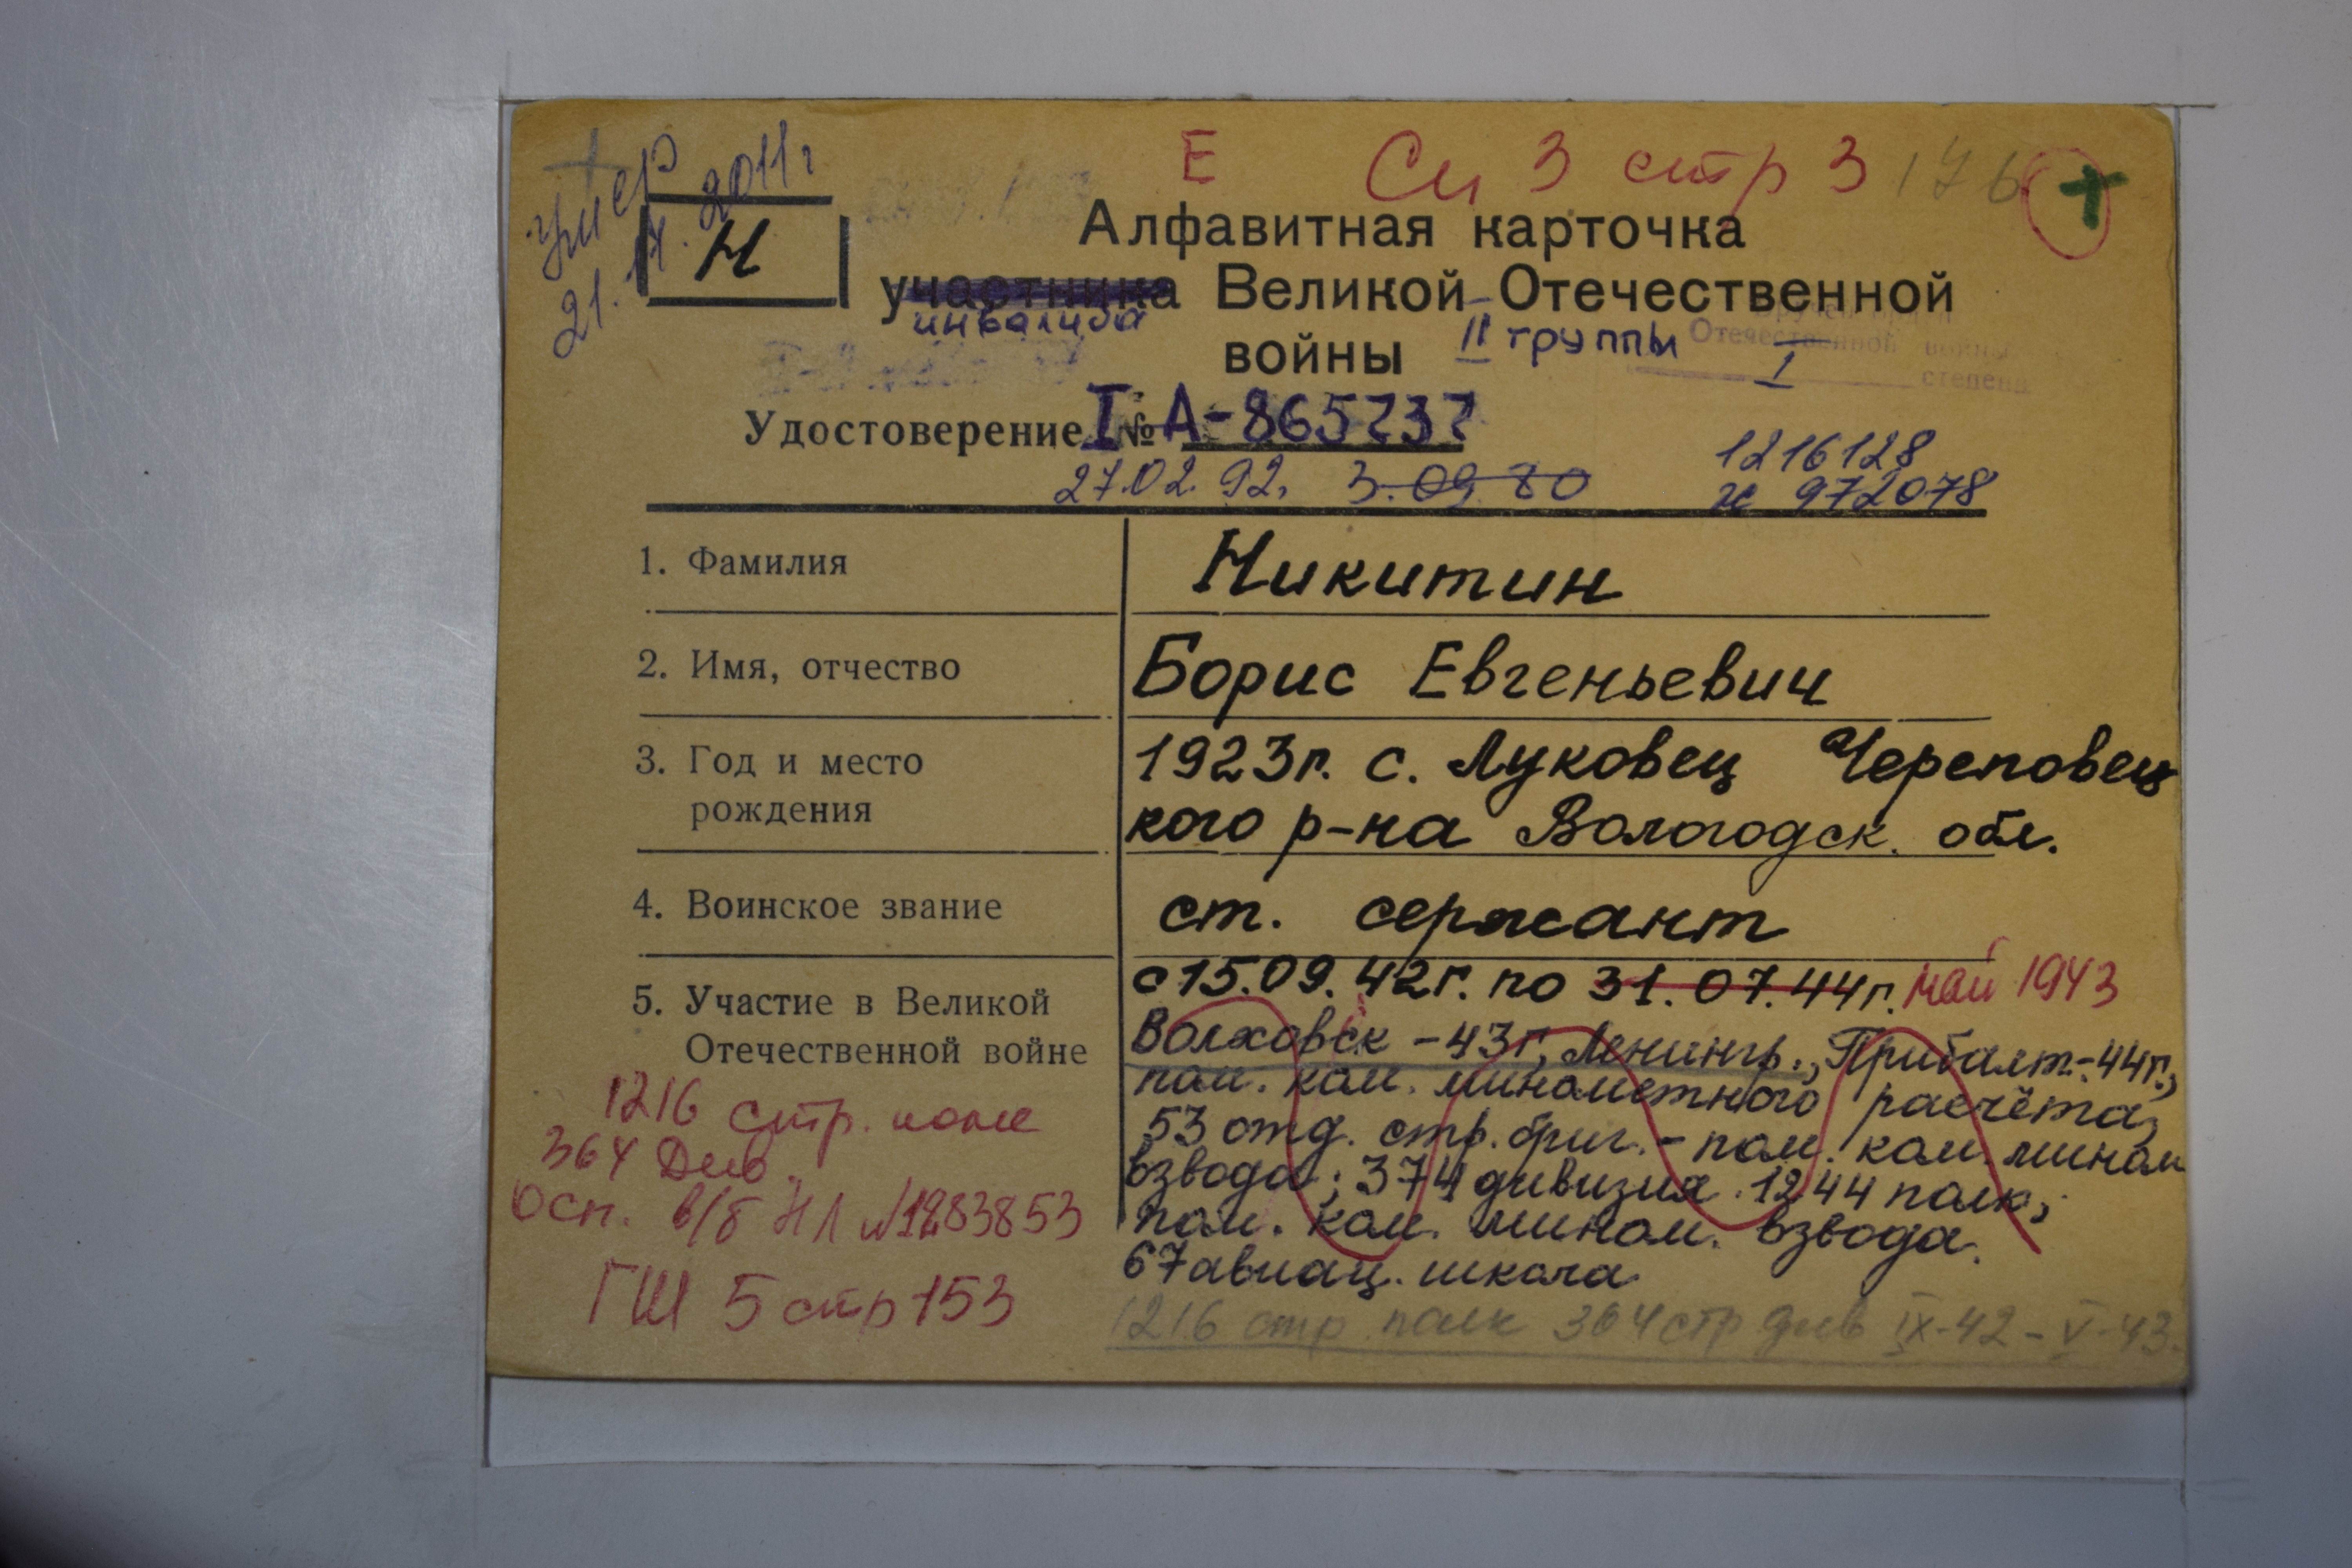 умер
21.17.2011г
Е Сп 3 стр 3 176 +
Н
Алфавитная карточка
участника Великой Отечественной
инвалида
войны II группы
Вручен орден
Отечественной войны
I степени
Удостоверение I № А-865737
27.02.92. 3.09.80
1216128
972078
1. Фамилия
Никитин
2. Имя, отчество
Борис Евгеньевич
3. Год и место
рождения
1923г. с. Луковец Череповец
кого р-на Вологодск. обл.
4. Воинское звание
ст. сержант
5. Участие в Великой
Отечественной войне
с 15.09.42г. по 31.07.44г. май 1943
Волховск -43г, Ленингр., Прибалт.-44г.,
пом. ком. минометного расчёта,
53 отд. стр. бриг. - пом. ком. мином
взвода; 374 дивизия 1244 полк,
пом. ком. мином. взвода.
67 авиац. школа
1216 стр полк 364 стр див IX-42 - V-43.
1216 стр. полк
364 Див.
осп. в/б Н Л №1283853
ГШ 5 стр 153